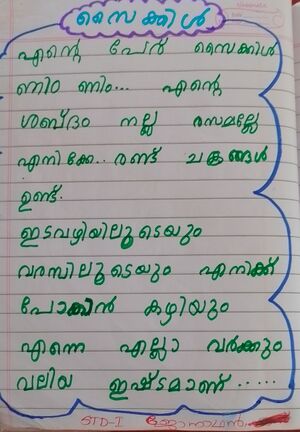 സൈക്കിൾ
എന്റെ പേര് സൈക്കിൾ
ണിം ണിം... എന്റെ
ശബ്ദം നല്ല രസമല്ലേ
എനിക്കേ.. രണ്ട് ചക്രങ്ങൾ
ഉണ്ട്.
ഇടവഴിയിലൂടെയും
വരമ്പിലൂടെയും എനിക്ക്
പോകാൻ കഴിയും
എന്നെ എല്ലാ വർക്കും
വലിയ ഇഷ്ടമാണ് .....
STD-I